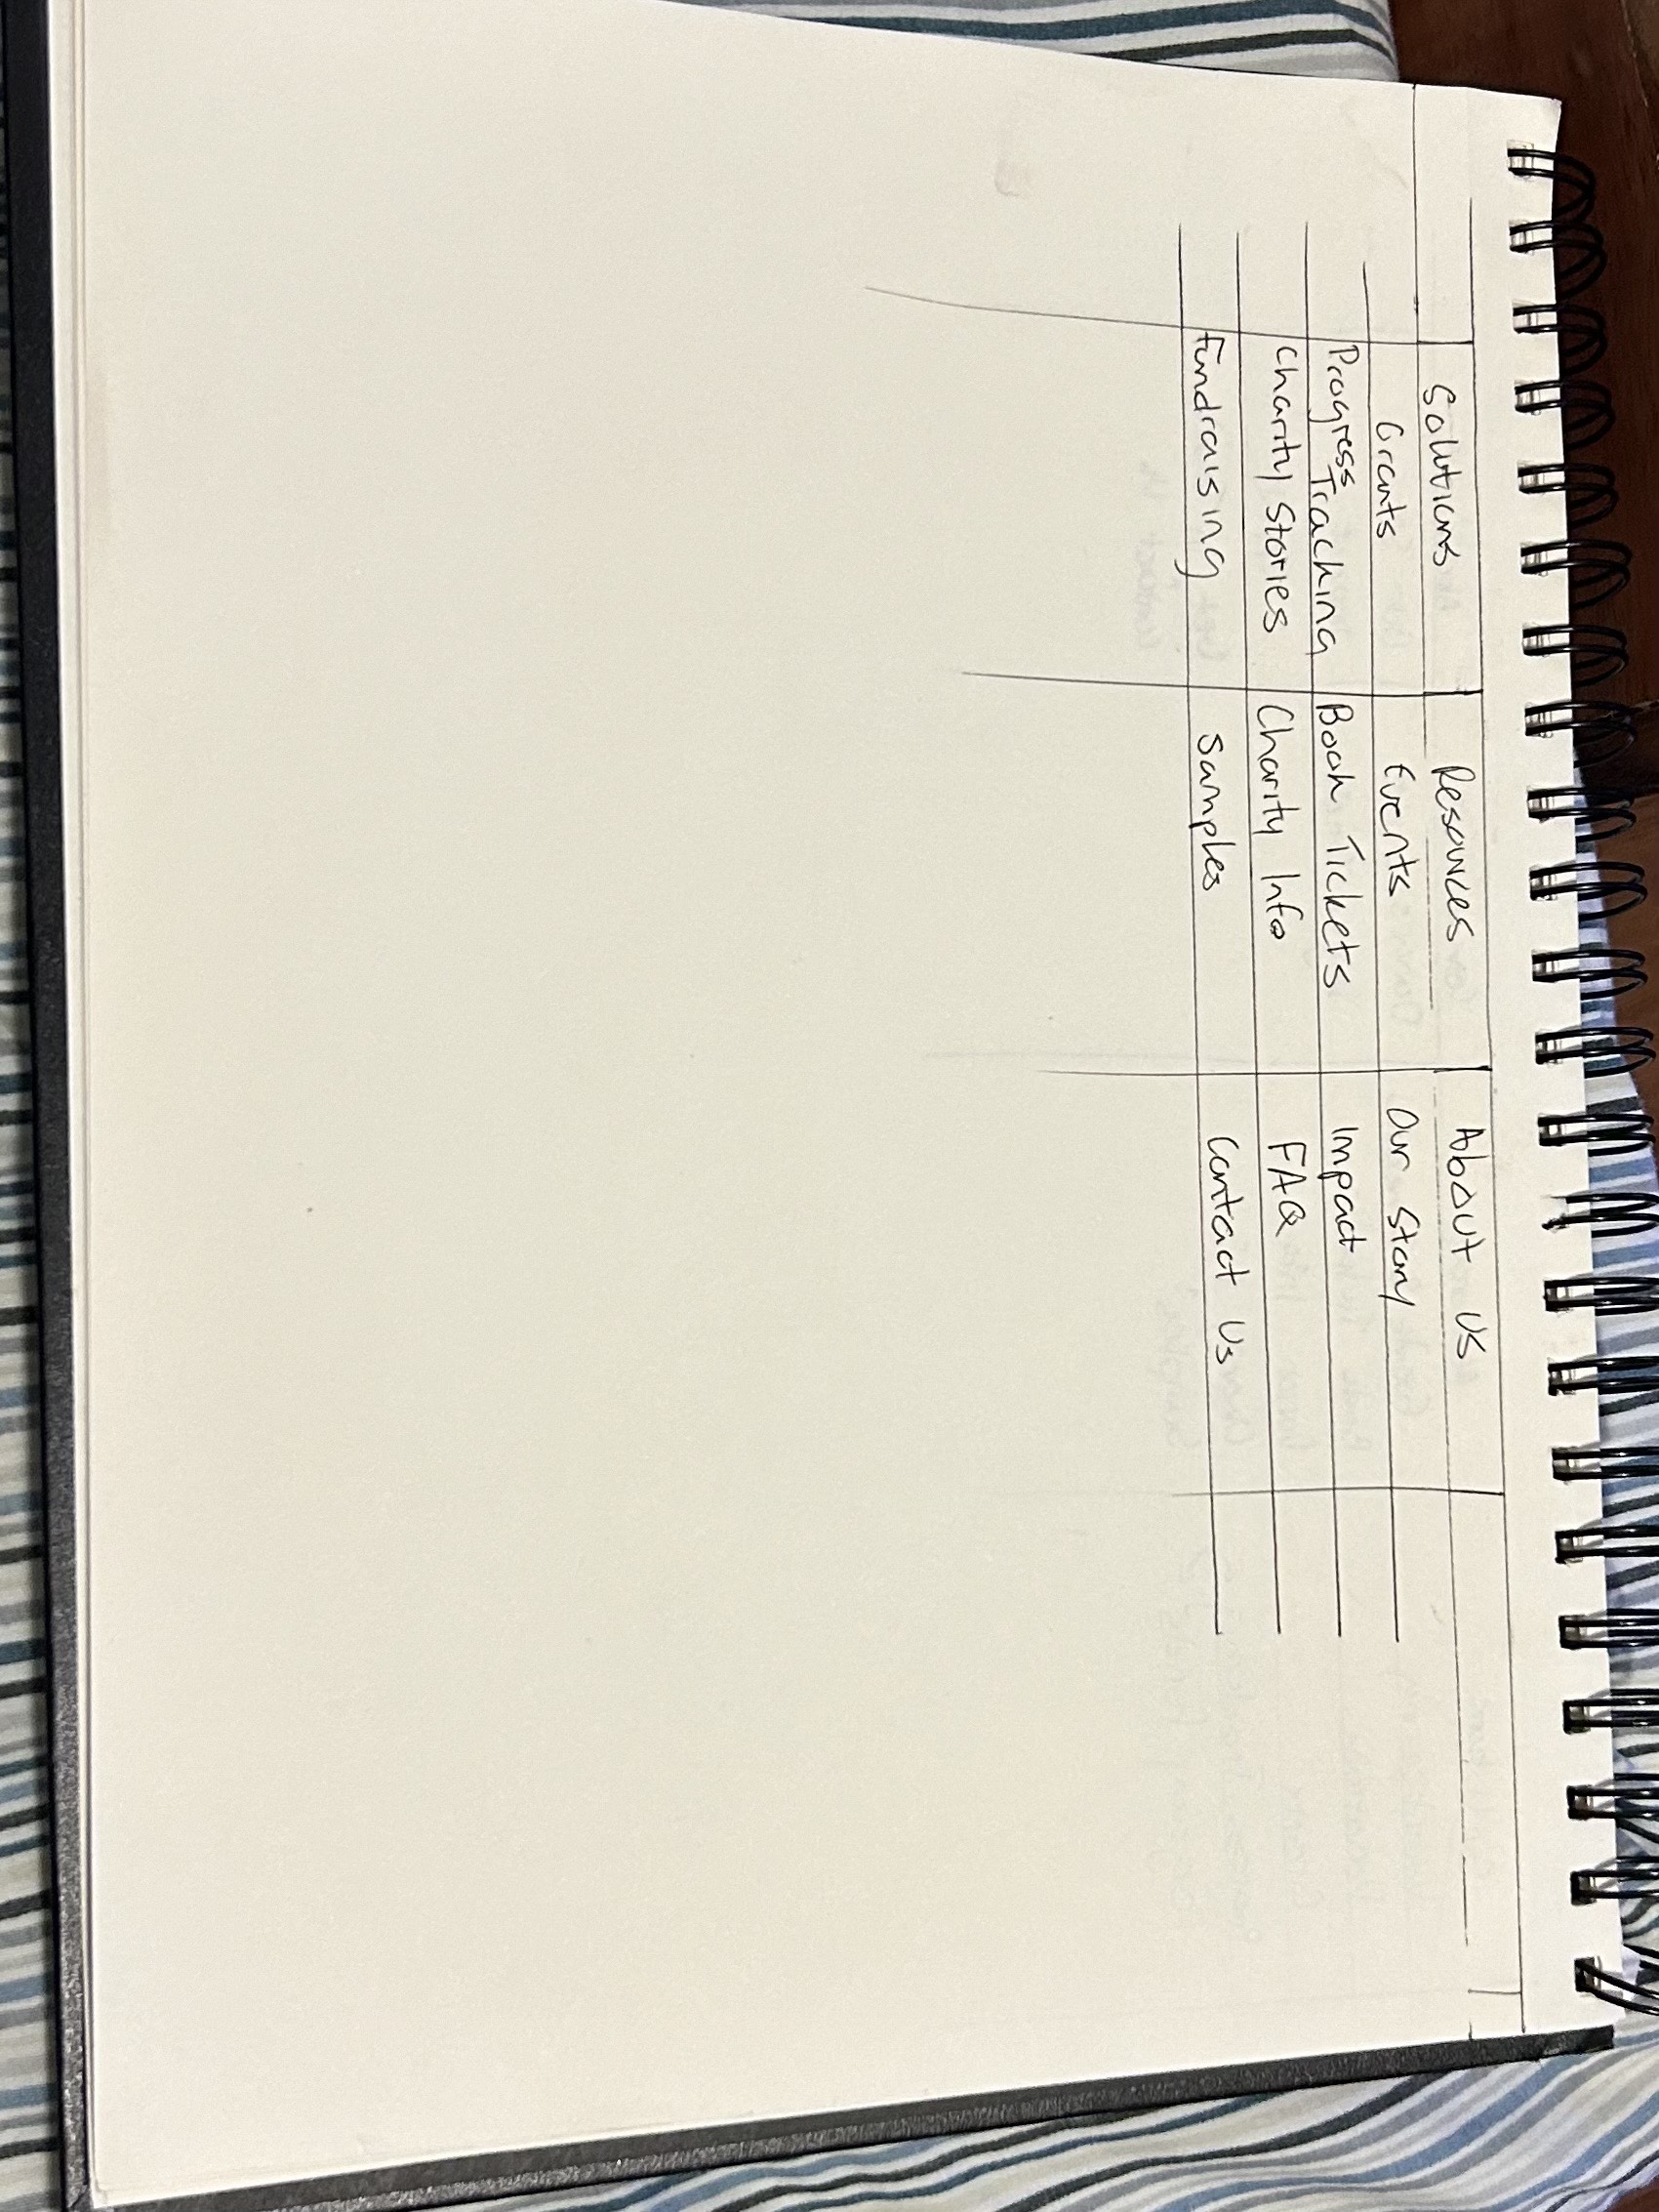 Solutions Resources About Us
Grants Events Our Story
Progress Tracking Book Tickets Impact
Charity Stories Charity Info FAQ
Fundraising Samples Contact Us